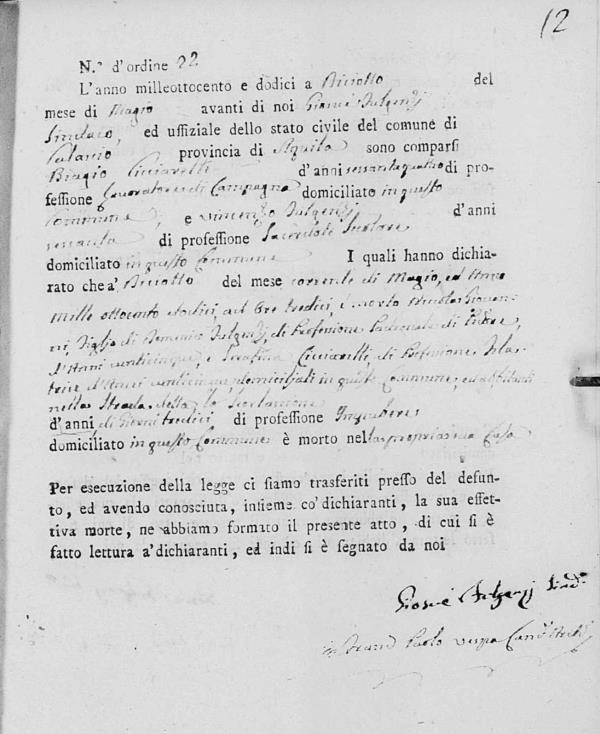 12
N.° d'ordine 22
L'anno milleottocento e dodici a Diciotto del
mese di Magio avanti di noi Giosuè Fulgenzj
Sindaco, ed uffiziale dello stato civile del comune di
provincia di Aquila sono comparsi
Biagio Cicciarelli d'anni sessantaquattro di pro-
fessione Lavoratore di Campagna domiciliato in questo
Commune, e Vincenzo Fulgenzj d'anni
sessanta di professione Sacerdote Secolare
domiciliato in questo Commune I quali hanno dichia-
rato che a' Diciotto del mese corrente di Magio, ed Anno
Mille ottocento dodici, ad Ore tredici, è morto Nicola Giovan-
ni, Figlio di Domenico Fulgenzj, di Professione
d'Anni venticinque, e Serafina Cicciarelli, di Professione Fila-
trice d'Anni venticinque domiciliati in questo Commune, ed abitanti
nella Strada detta lo
d'anni di Giorni tredici di professione
domiciliato in questo Commune è morto nella propria sua Casa
Per esecuzione della legge ci siamo trasferiti presso del defun-
to, ed avendo conosciuta, insieme co' dichiaranti, la sua effet-
tiva morte, ne abbiamo formato il presente atto, di cui si è
fatto lettura a' dichiaranti, ed indi si è segnato da noi
Giosuè Fulgenzj Sind.°
Paolo Vespa